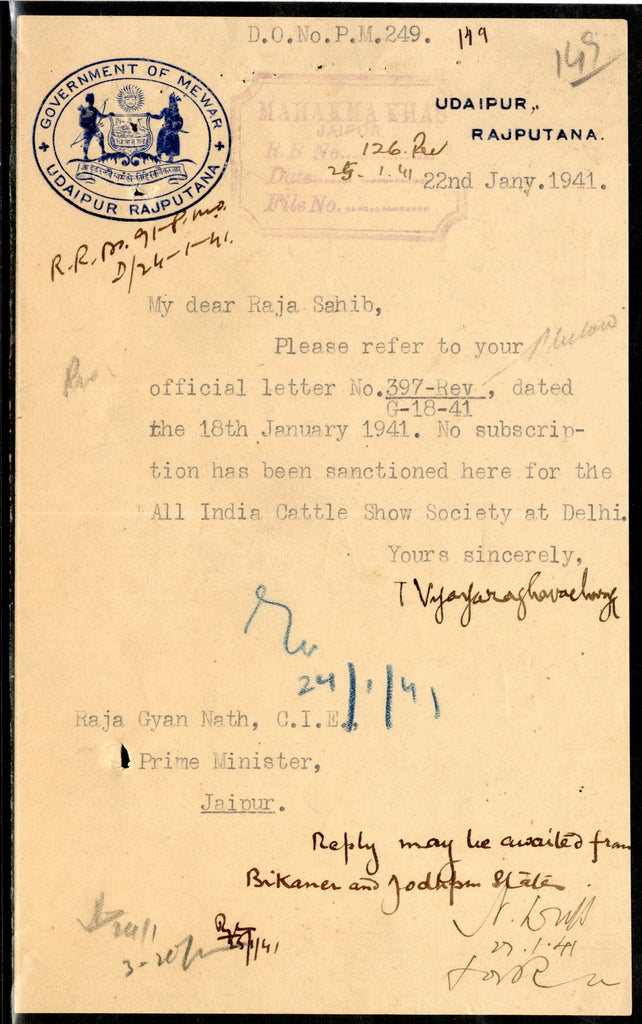 D.O.No.P.M.249. 149
149
GOVERNMENT OF MEWAR
UDAIPUR RAJPUTANA
MAHAKMA KHAS
JAIPUR
R. B No. 126. Rev
Date 25.1.41
File No.
UDAIPUR,
RAJPUTANA.
22nd Jany.1941.
R.R. No. 91-P.M.O.
D/24-1-41.
My dear Raja Sahib,
Please refer to your
official letter No.397-Rev, dated
G-18-41
the 18th January 1941. No subscrip-
tion has been sanctioned here for the
All India Cattle Show Society at Delhi.
Yours sincerely,
T Vijayaraghavacharya
24/1/41
Raja Gyan Nath, C.I.E.,
Prime Minister,
Jaipur.
Reply may be awaited from
Bikaner and Jodhpur States
24/1
27.1.41